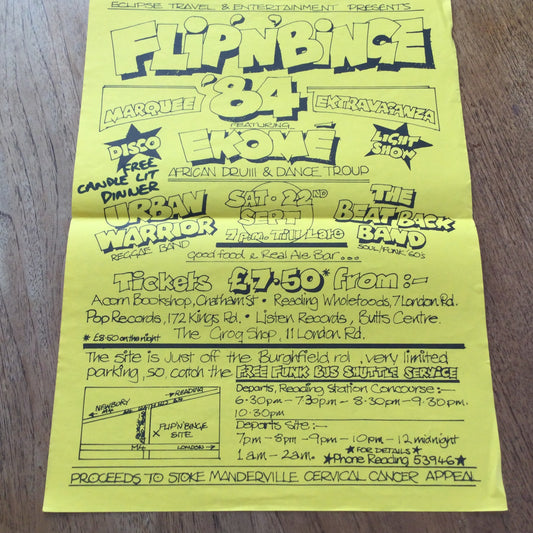 ECLIPSE TRAVEL & ENTERTAINMENT PRESENTS
FLIP'N'BINGE
'84
MARQUEE EXTRAVAGANZA
FEATURING
DISCO EKOME LIGHT SHOW
AFRICAN DRUM & DANCE TROUP
FREE
CANDLE LIT
DINNER
URBAN WARRIOR
REGGAE BAND
SAT. 22ND
SEPT
7pm. Till Late
THE BEAT BACK BAND
SOUL/FUNK 60's
Good food & Real Ale Bar ...
Tickets £7.50* from :-
Acorn Bookshop, Chatham St • Reading Wholefoods, 7 London Rd.
Pop Records, 172 Kings Rd. • Listen Records, Butts Centre.
* £8.50 on the night
The Grog Shop, 11 London Rd.
The site is Just off the Burghfield rd, very limited
parking, so catch the FREE FUNK BUS SHUTTLE SERVICE
Departs, Reading, Station Concourse :-
6.30pm - 7.30pm - 8.30pm - 9.30pm.
10.30pm
Departs Site :-
7pm - 8pm - 9pm - 10pm - 12 midnight
1am - 2am.
★FOR DETAILS★
★Phone Reading 53946★
READING
NEWBURY
A4 BATH RD A4
FLIP'N'BINGE
X SITE
M4 LONDON
PROCEEDS TO STOKE MANDERVILLE CERVICAL CANCER APPEAL